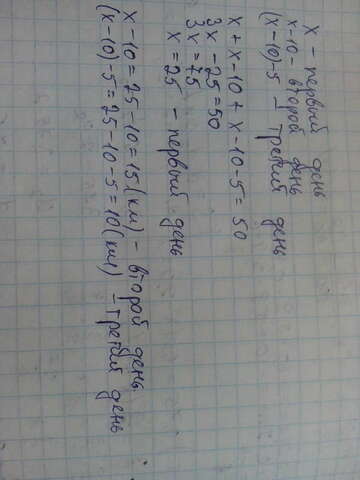 x - первый день
x-10 - второй день
(x-10)-5 - третий день
x + x - 10 + x - 10 - 5 = 50
3x - 25 = 50
3x = 75
x = 25 - первый день
x - 10 = 25 - 10 = 15 (км) - второй день
(x-10)-5 = 25-10-5 = 10 (км) - третий день